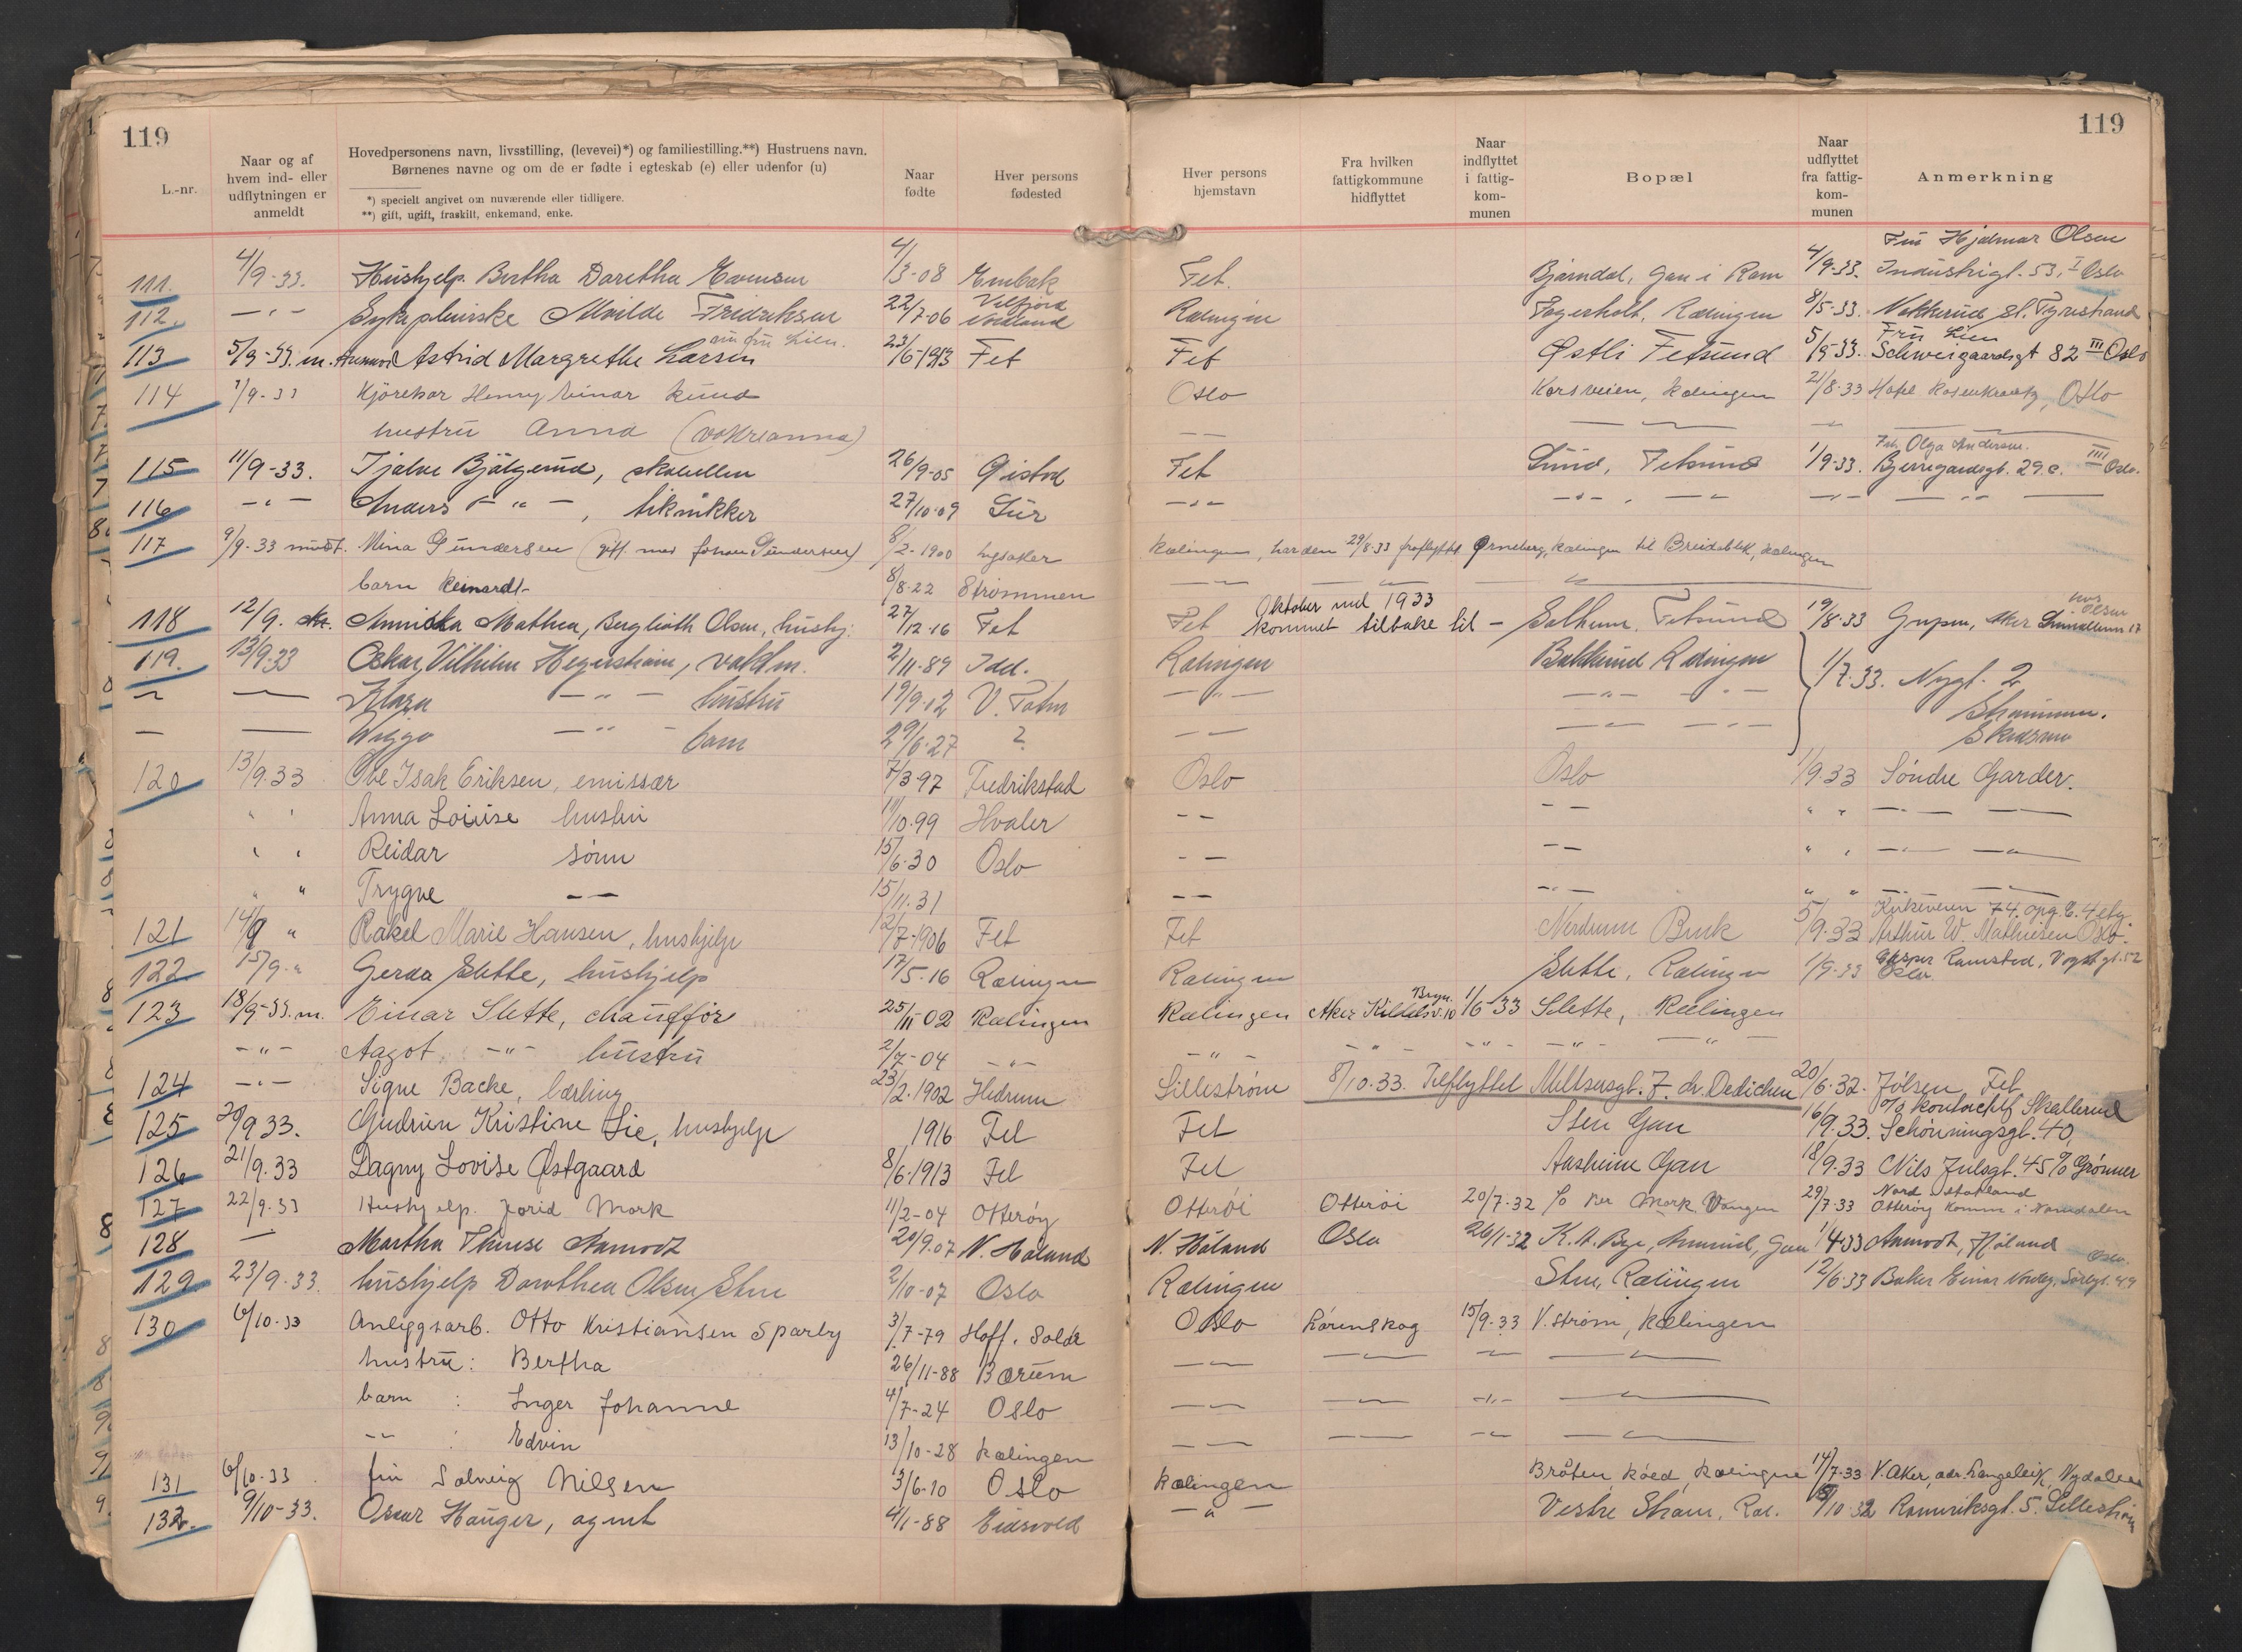 119
119
L.-nr.
Naar og af hvem ind- eller udflytningen er anmeldt
Hovedpersonens navn, livsstilling, (levevei)*) og familiestilling.**) Hustruens navn.
Børnenes navne og om de er fødte i egteskab (e) eller udenfor (u)
*) specielt angivet om nuværende eller tidligere.
**) gift, ugift, fraskilt, enkemand, enke.
Naar fødte
Hver persons fødested
Hver persons hjemstavn
Fra hvilken fattigkommune hidflyttet
Naar indflyttet i fattig-kom-munen
Bopæl
Naar udflyttet fra fattig-kom-munen
Anmerkning
Fru Hjalmar Olsen
111. 4/9-33. Hushjelp. Bertha Daretha Evensen 4/13-08 Enebak Fet. Bjørndal, Gan i Rom 4/9-33. Industrigt. 53, I Oslo
112. -"- Sykepleierske Alvilde Fridriksen 22/7-06 Velfjord Nordland Rælingen Fagerholt, Rælingen 8/5-33. Nakkerud st. Tyristrand
113 5/9-33. m. Astrid Margrethe Larsen nu fru Lien. 23/6-1913 Fet Fet Østli Fetsund 5/9-33. Fru Lien Schweigaardsgt 82 III Oslo
114 7/9-33 Kjørekar Henry Einar Rund Oslo Korsveien, Rælingen 21/8-33 Hotel Rosenkrantz, Oslo
hustru Anna
115 11/9-33. Tjalve Bjålgerud, skoluellen 26/9-05 Fet Lund, Fetsund 1/9-33. Frk Olga Andersen. Bjerregaardsgt. 29.c. III Oslo.
116 -"- Anders -"-, tiknikker 27/10-09 Sür -"- -"- -"- -"- -"-
117 9/9-33 mundt. Mina Gundersen (gift med Johan Gundersen) 8/2-1900 Lysaker Rælingen, har den 29/8-33 fraflyttet Ørneberg, Rælingen til Breidablik, Rælingen
barn Reinardt- 8/8-22 Strømmen
118 12/9. Mathea, Berglioth Olsen, hushj. 27/12-16 Fet Fet Oktober mnd 1933 kommet tilbake til - Solheim. Fetsund 19/8-33 Aker
119. 13/9-33 Oskar, Vilhelm Hegerstrøm, valsm. 2/11-89 Idd. Rælingen Bakkerud Rælingen 1/7-33. Nygt. 2 Strømmen. Skedsmo
Klara -"- hustru 19/9-02 V. Toten
Viggo -"- barn 29/6-27 ?
120 13/9.33 Ole Isak Eriksen, emissær 7/3-97 Fredrikstad Oslo Oslo 1/9.33 Søndre Garder.
" " Anna Louise hustru 11/10-99 Hvaler -- -- " "
" " Reidar sønn 15/6-30 Oslo -- -- " "
" " Trygve -- 15/11.31 -- -- " "
121 14/9 " Rakel Marie Hansen, hushjelp 12/7-1906 Fet Fet Nerdrum Bruk 5/9.33 Kirkeveien 74. opg. C. 4 etg. Arthur W. Mathiesen Oslo.
122 15/9." Gerda Slette, hushjelp 17/5-16 Rælingen Rælingen Slette, Rælingen 1/9-33 Casper Ramstad, Vogts gt. 52 Oslo
123 18/9-33. m. Einar Slette, chauffør 25/11-02 Rælingen Rælingen Aker Bryn. 1/6-33 Slette, Rælingen
-"- Aagot -"- hustru 2/7-04 -"- -"- -"- -"- -"- -"-
124 -"- Signe Backe, lærling 23/2.1902 Hedrum Lillestrøm 8/10-33. Tilflyttet dr. Dedichen 20/6-32. Jølsen, Fet
125 20/9 33. Gudrun Kristine Lie, hushjelp 1916 Fet Fet Sten Gan 16/9.33. c/o kontorchef Skallerud Schønningsgt. 40,
126 21/9.33 Dagny Lovise Østgaard 8/6.1913 Fet Fet Aasheim Gan 18/9-33 Nils Juelsgt. 45 c/o Grønner
127 22/9-33 Hushjelp. Jorid Mork 11/2-04 Otterøy Otterøi Otterøi 20/7-32 c/o Per Mork Vangen 29/7-33 Nord Statland Otterøy komm i Namdalen
128 — Martha Therese Aamodt 20/9.07 N. Høland N. Høland Oslo 26/1-32 K. A. Bye, Gan 1/4-33 Aamodt, Høland
129 23/9-33. hushjelp Dorothea Olsen Stue 2/10-07 Oslo Rælingen Stue, Rælingen 12/6-33 Baker Einar Nordby, Sørligt. 49 Oslo.
130 6/10-33 Anleggsarb. Otto Kristiansen Sparby 3/7-79 Hoff. Solør Oslo Lørenskog 15/9-33 V. strøm, Rælingen
hustru: Bertha 26/11-88 Bærum
barn : Inger Johanne 4/7-24 Oslo
-"- : Edvin 13/10-28 Rælingen
131 6/10-33 fru Solveig Nilsen 3/6-10 Oslo Rælingen Bråten, Rælingen 14/7-33 V. Aker, adr. Langeleik, Nydalen
132. 9/10-33. Oscar Hauger, agent 4/1-88 Eidsvold -"- Vestre Strøm, Ræl. 10-32 Romeriksgt. 5. Lillestrøm